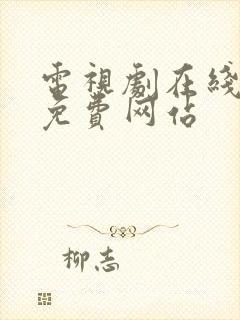 電視劇在綫
免費网站
柳志